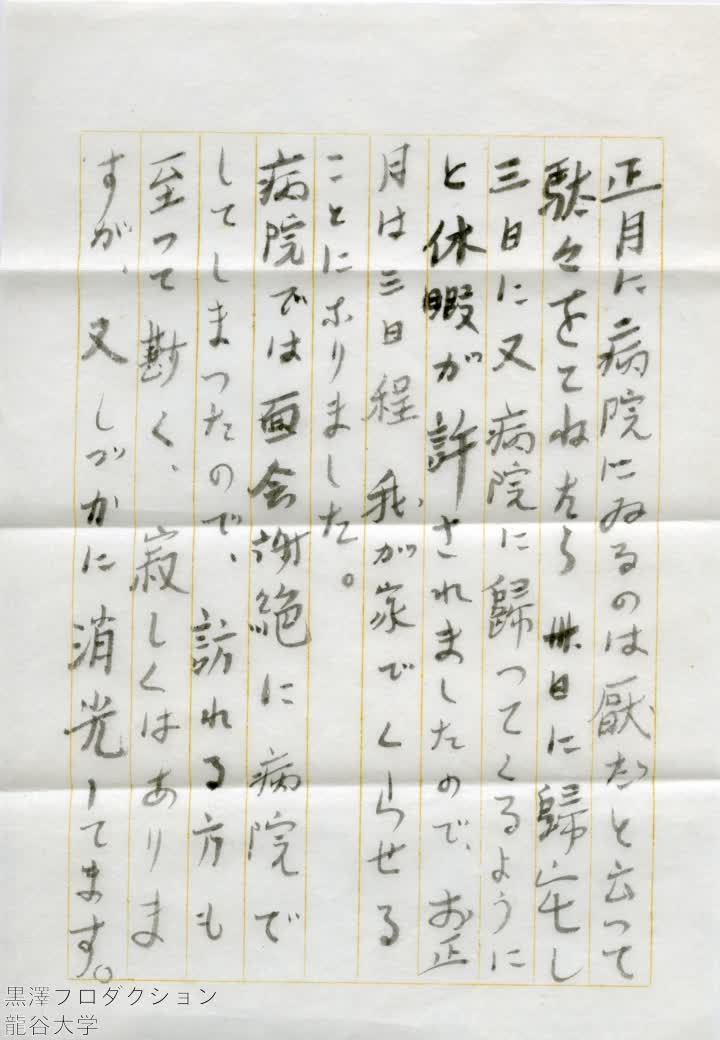 正月に病院にゐるのは厭だと云つて
駄々をこねたら 卅日に歸宅し
三日に又病院に歸つてくるように
と休暇が許されましたので、お正
月は三日程 我が家でくらせる
ことになりました。
病院では面会謝絶に病院で
してしまつたので、訪れる方も
至つて尠く、寂しくはありま
すが、又しづかに消光してます。
黒澤フロダクション
龍谷大学